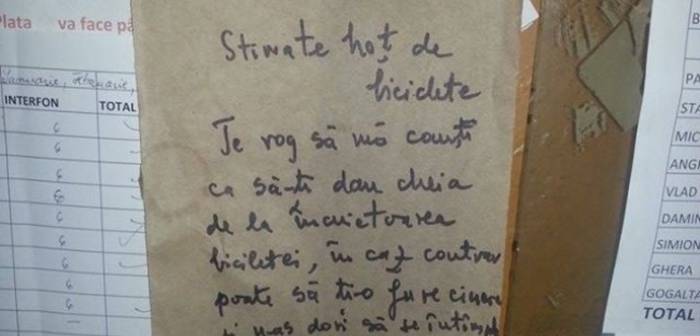 Plata va face pâ
Ianuarie, Februarie,
INTERFON TOTAL
6
6
6
6
6
6
6
6
6
Stimate hoț de
biciclete
Te rog să mă cauți
ca să-ți dau cheia
de la încuietoarea
bicicletei, în caz contrar
poate să ți-o fure cineva
și n-aș dori să se întîmple
B
PA
STA
MIC
ANG
VLAD
DAMIN
SIMION
GHERA
GOGALTA
TOTAL